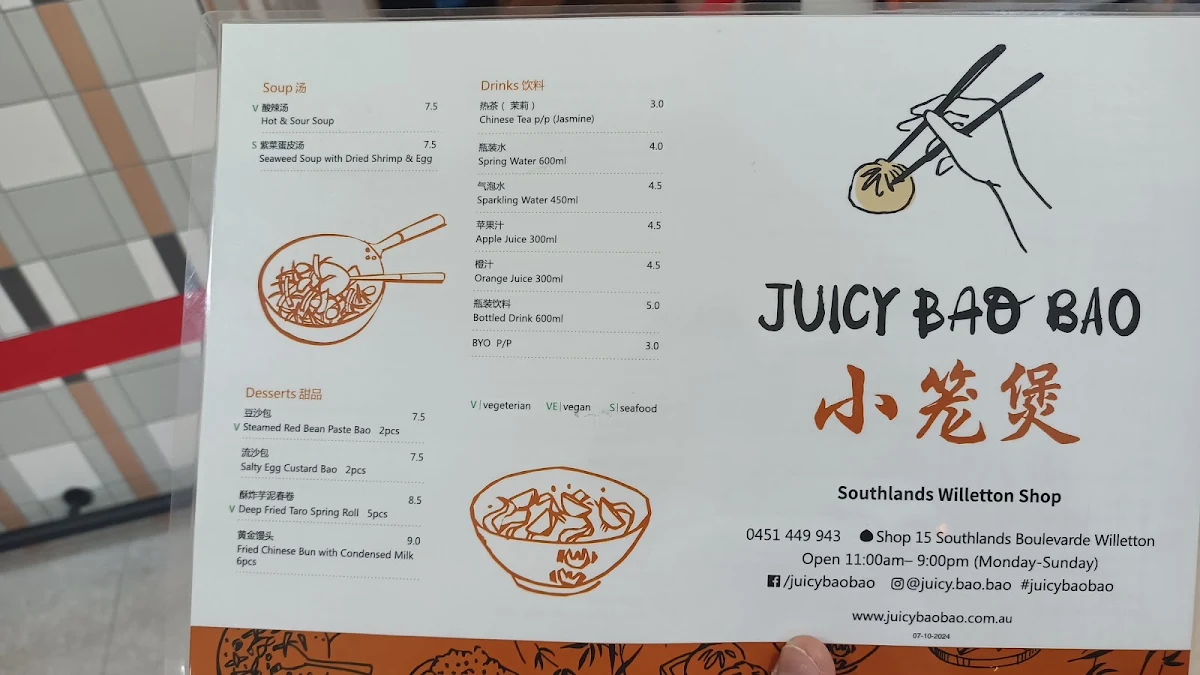 Soup 汤
V 酸辣汤 7.5
Hot & Sour Soup
S 紫菜蛋皮汤 7.5
Seaweed Soup with Dried Shrimp & Egg
Desserts 甜品
豆沙包 7.5
V Steamed Red Bean Paste Bao 2pcs
流沙包 7.5
Salty Egg Custard Bao 2pcs
酥炸芋泥春卷 8.5
V Deep Fried Taro Spring Roll 5pcs
黄金馒头 9.0
Fried Chinese Bun with Condensed Milk
6pcs
Drinks 饮料
热茶（ 茉莉 ） 3.0
Chinese Tea p/p (Jasmine)
瓶装水 4.0
Spring Water 600ml
气泡水 4.5
Sparkling Water 450ml
苹果汁 4.5
Apple Juice 300ml
橙汁 4.5
Orange Juice 300ml
瓶装饮料 5.0
Bottled Drink 600ml
BYO P/P 3.0
V|vegeterian VE|vegan S|seafood
JUICY BAO BAO
小笼煲
Southlands Willetton Shop
0451 449 943 Shop 15 Southlands Boulevarde Willetton
Open 11:00am– 9:00pm (Monday-Sunday)
/juicybaobao @juicy.bao.bao #juicybaobao
www.juicybaobao.com.au
07-10-2024